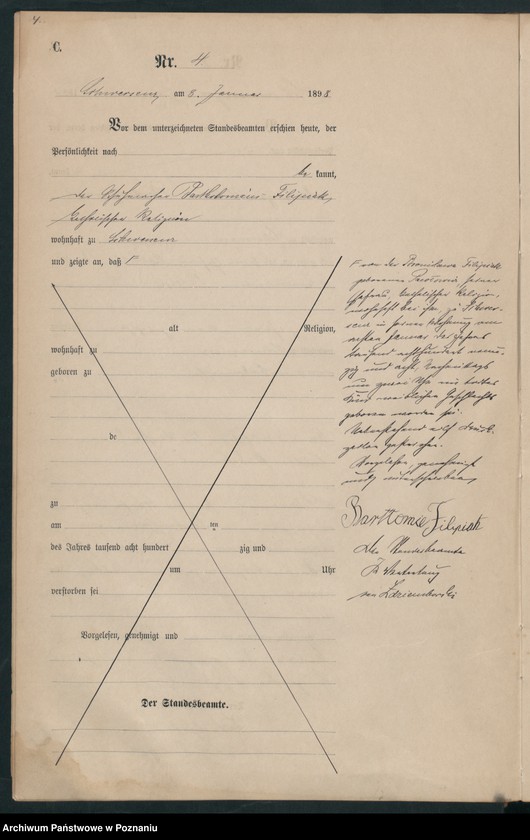 4.
C.
Nr. 4
Schwersenz, am 8. Januar 1898
Vor dem unterzeichneten Standesbeamten erschien heute, der
Persönlichkeit nach
be kannt,
der Schuhmacher Bartholomäus Filipiak,
katholischer Religion
wohnhaft zu Schwersenz
und zeigte an, daß
von der Bronislawa Filipiak
geborenen seiner
Ehefrau katholischer Religion,
wohnhaft bei ihm zu Schwer-
senz in seiner Wohnung am
ersten Januar des Jahres
tausend achthundert neun-
zig und acht, Nachmittags
um Uhr ein todtes
Kind weiblichen Geschlechts
geboren worden sei.
Druck-
Vorgelesen, genehmigt
und unterschrieben
Bartłomie Filipiak
Der Standesbeamte
In Vertretung
alt Religion,
wohnhaft zu
geboren zu
de
zu
am ten
des Jahres tausend acht hundert zig und
um Uhr
verstorben sei
Vorgelesen, genehmigt und
Der Standesbeamte.
Archiwum Państwowe w Poznaniu